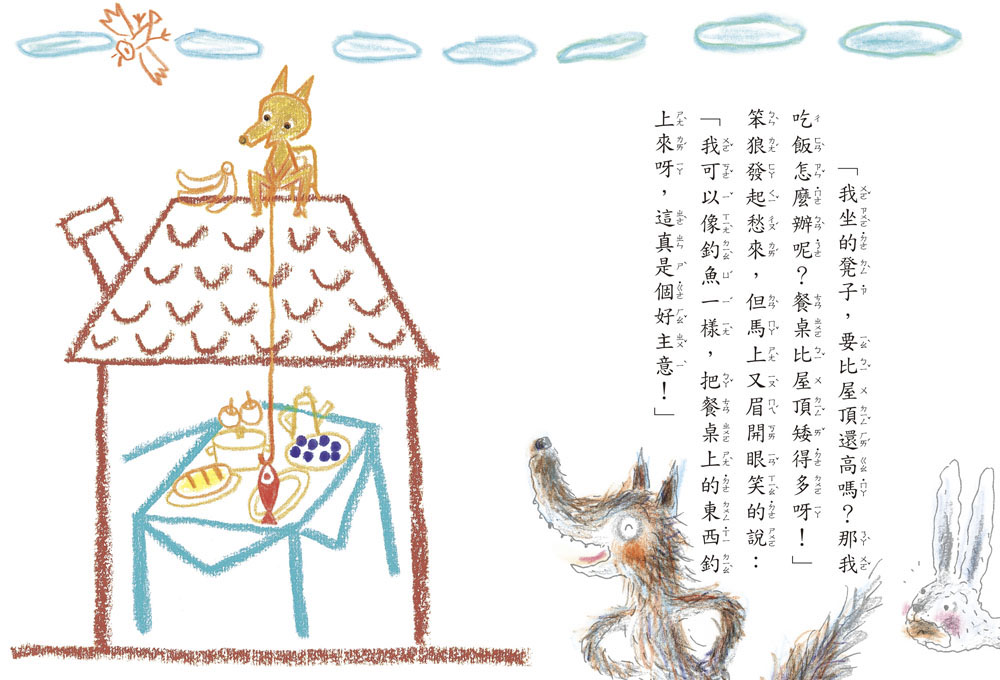 「我坐的凳子，要比屋頂還高嗎？那我
吃飯怎麼辦呢？餐桌比屋頂矮得多呀！」
笨狼發起愁來，但馬上又眉開眼笑的說：
「我可以像釣魚一樣，把餐桌上的東西釣
上來呀，這真是個好主意！」